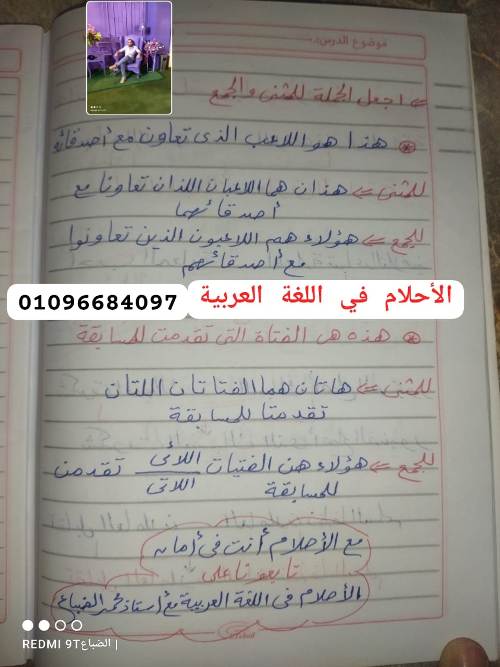 موضوع الدرس:
اجعل الجملة للمثنى والجمع
هذا هو اللاعب الذى تعاون مع أصدقائه
للمثنى ⇐ هذان هما اللاعبان اللذان تعاونا مع
أصدقائهما
للجمع ⇐ هؤلاء هم اللاعبون الذين تعاونوا
مع أصدقائهم
الأحلام في اللغة العربية 01096684097
هذه هى الفتاة التى تقدمت للمسابقة
للمثنى ⇐ هاتان هما الفتاتان اللتان
تقدمتا للمسابقة
للجمع ⇐ هؤلاء هن الفتيات اللائى تقدمن
اللاتى
للمسابقة
مع الأحلام أنت فى أمان
تابعونا على
الأحلام فى اللغة العربية مع أستاذ محمد الضباع
REDMI 9T | الضباع